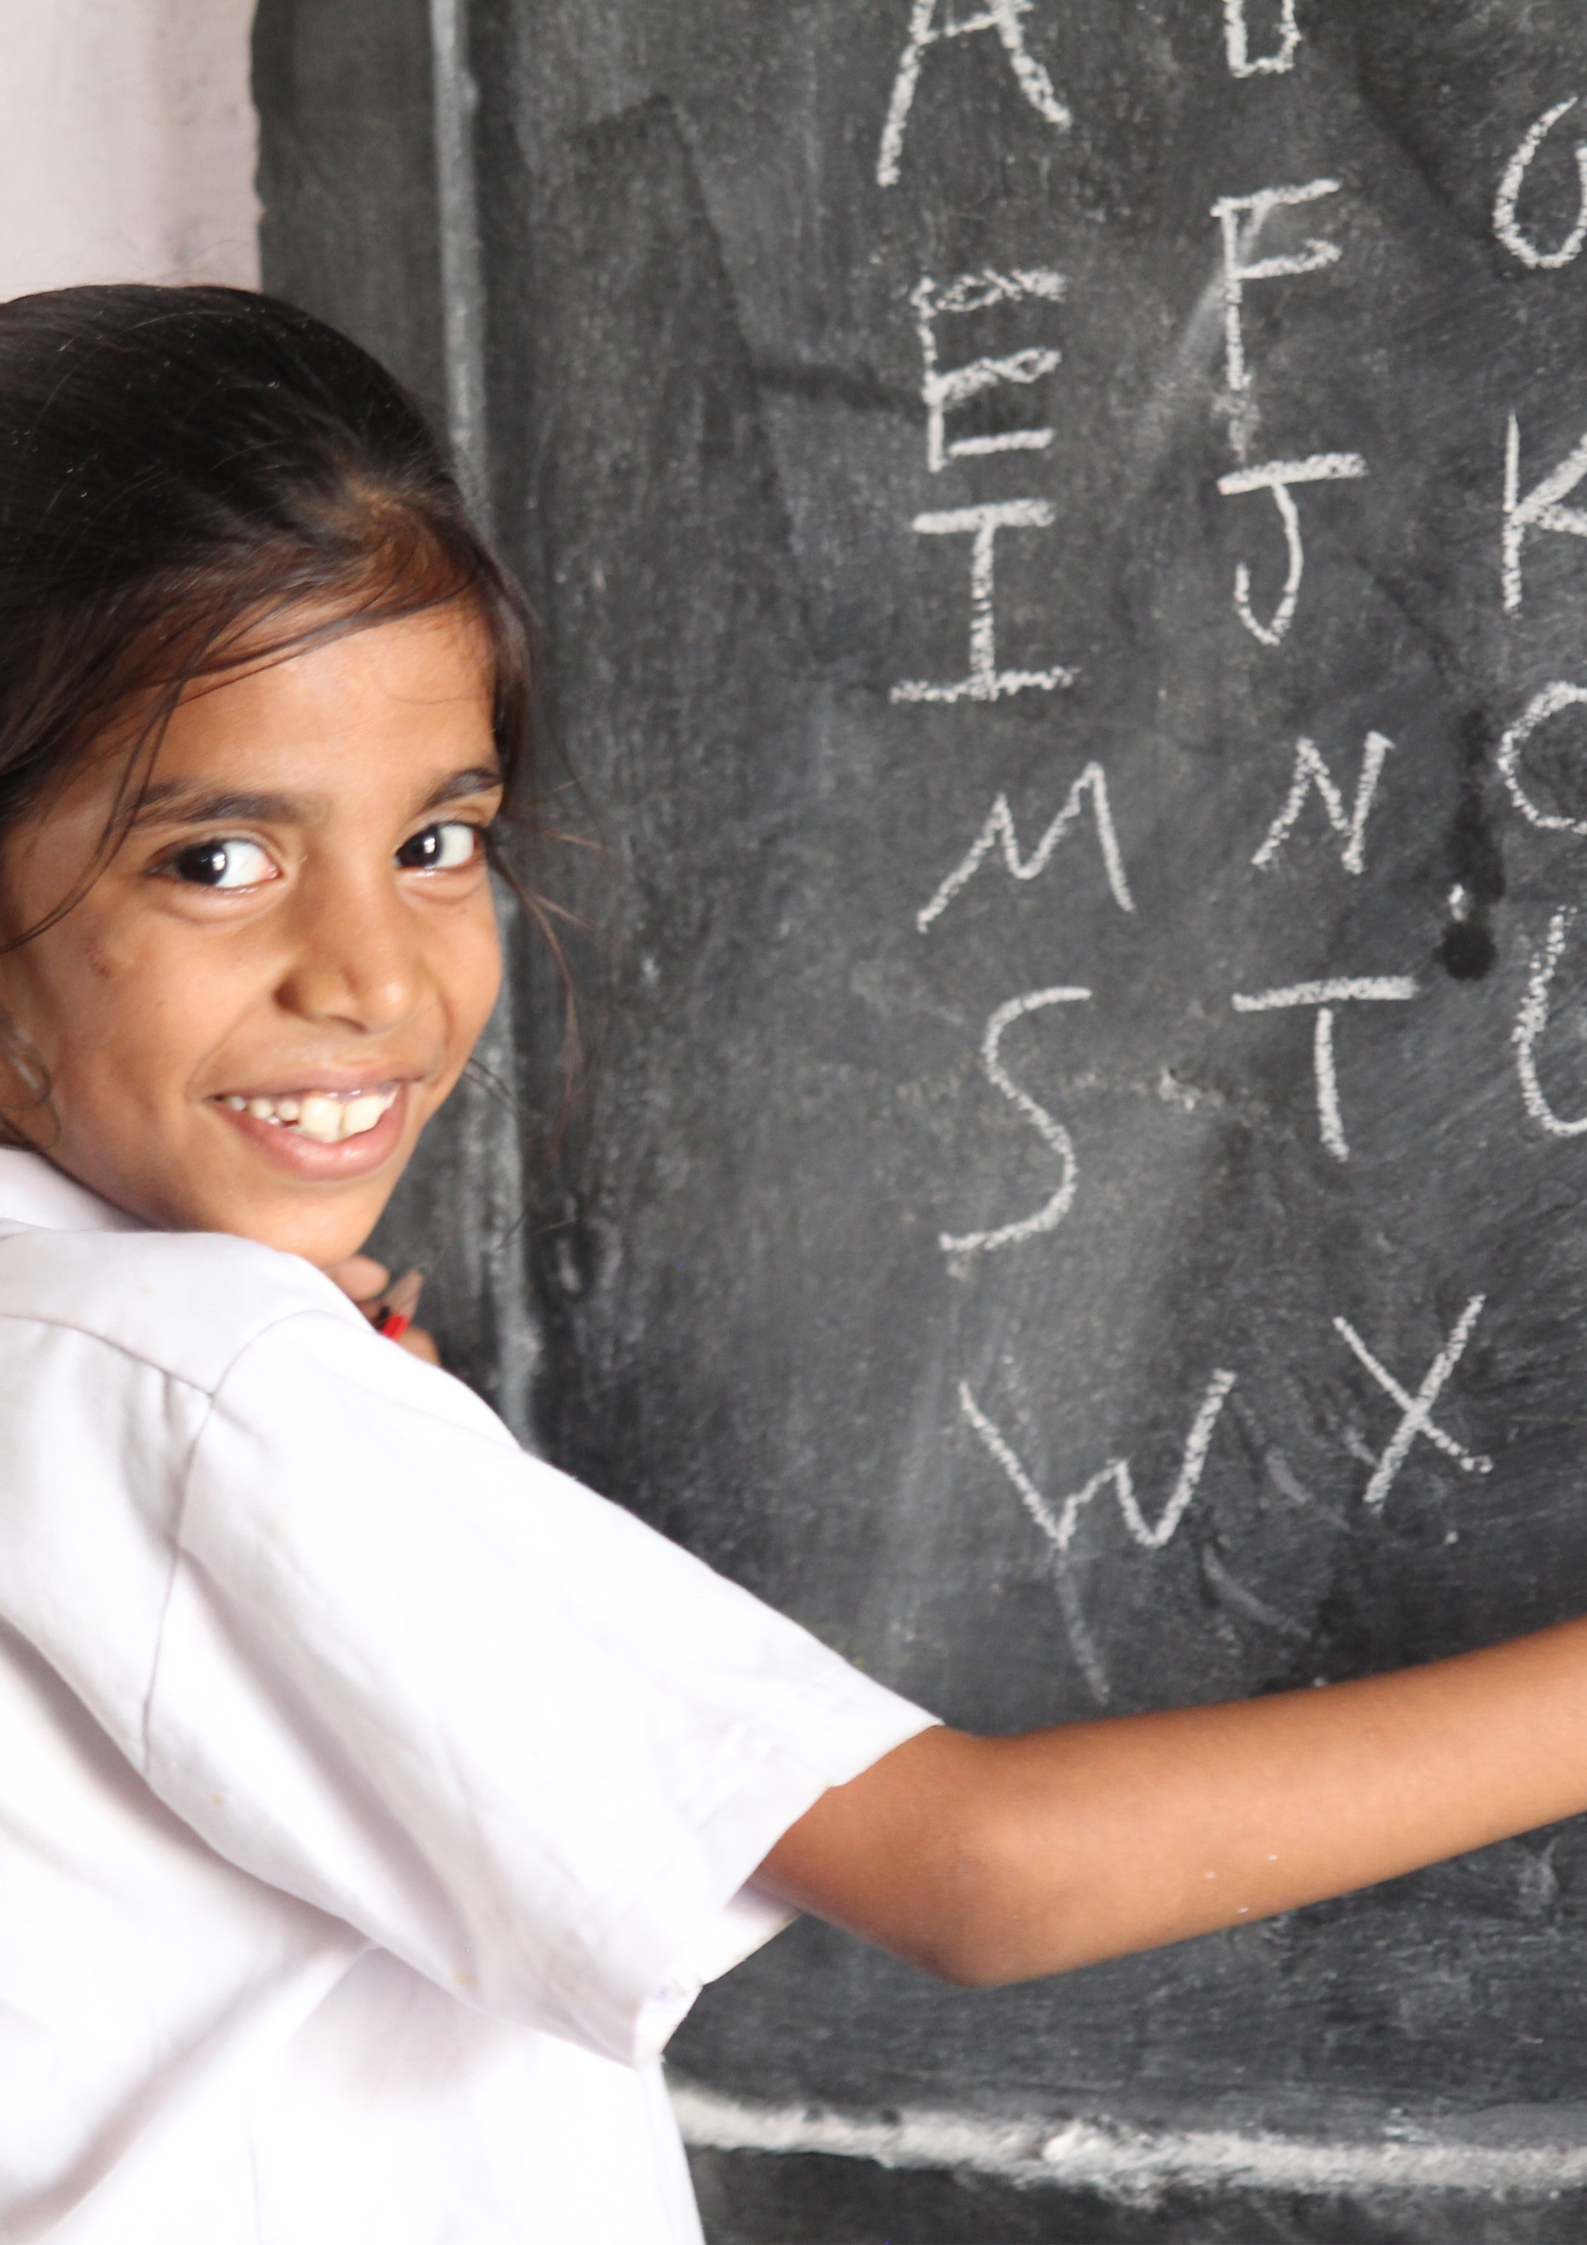 A
E F
I J K
M N
S T U
W X